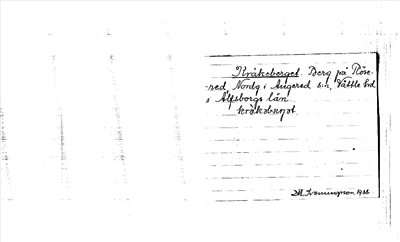 Kråkeberget. Berg på Röse-
red, Nordg i Angered sn, Vättle hd
i Älfsborgs län.
kråkebärjet.
1932